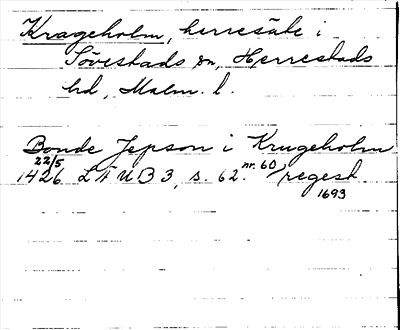 Krageholm, herresäte i
Sövestads sn, Herrestads
hd, Malm. l.
Bonde Jepson i Krugeholm
22/5
1426 LÄUB 3, s. 62. nr. 60 /regest.
1693